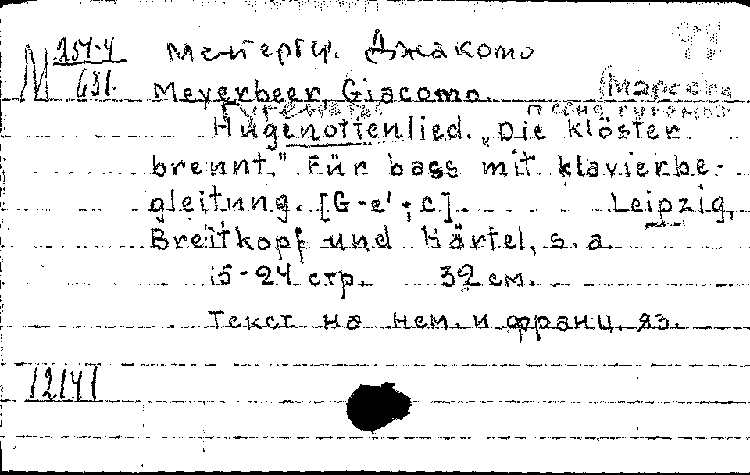 М 257-4 / 631.
Мейербер. Джакомо
Meyerbeer Giacomo. (Марсель
Гугенотты песня гугенота
Hugenottenlied. „Die klöster
brennt.” Für bass mit klavierbe-
gleitung. [G-e'; c]. Leipzig,
Breitkopf und Härtel, s. a.
15-24 стр. 32 см.
Текст на нем. и франц. яз.
12141